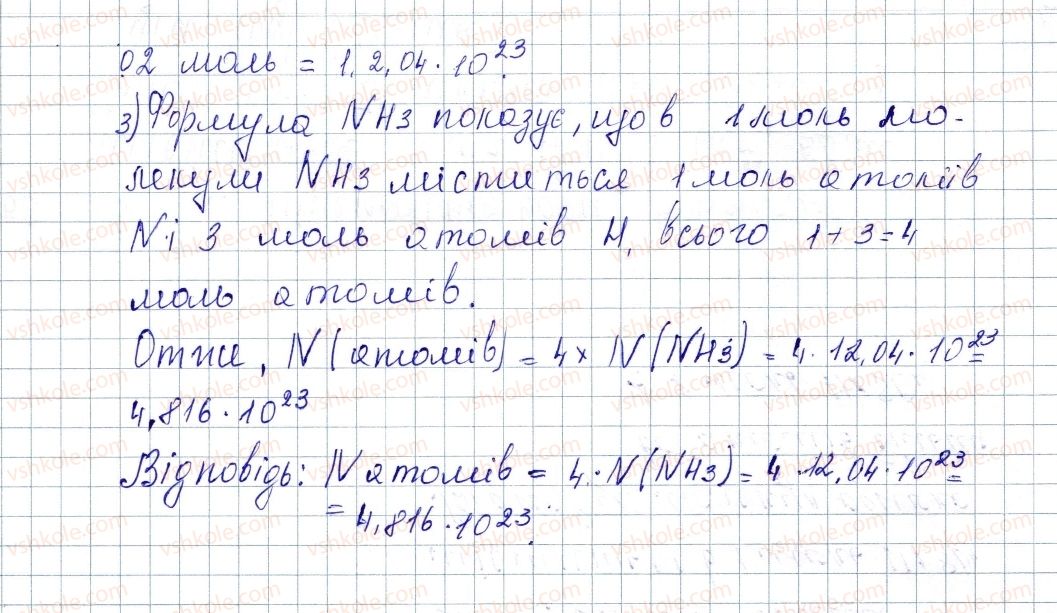 02 моль = 1,2,04·10²³.
3) Формула NH3 показує, що в 1 моль мо-
лекули NH3 міститься 1 моль атомів
N і 3 моль атомів H, всього 1+3=4
моль атомів.
Отже, N(атомів) = 4× N(NH3) = 4·12,04·10²³ =
4,816·10²³
Відповідь: N атомів = 4·N(NH3) = 4·12,04·10²³ =
= 4,816·10²³.